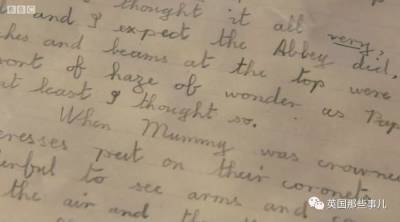 BBC
thought it all very,
and I expect the Abbey did,
ches and beams at the top were
ort of haze of wonder as Pap
at least I thought so.
When Mummy was crowne
eresses put on their coronet
erful to see arms and co
the air and th
英国那些事儿